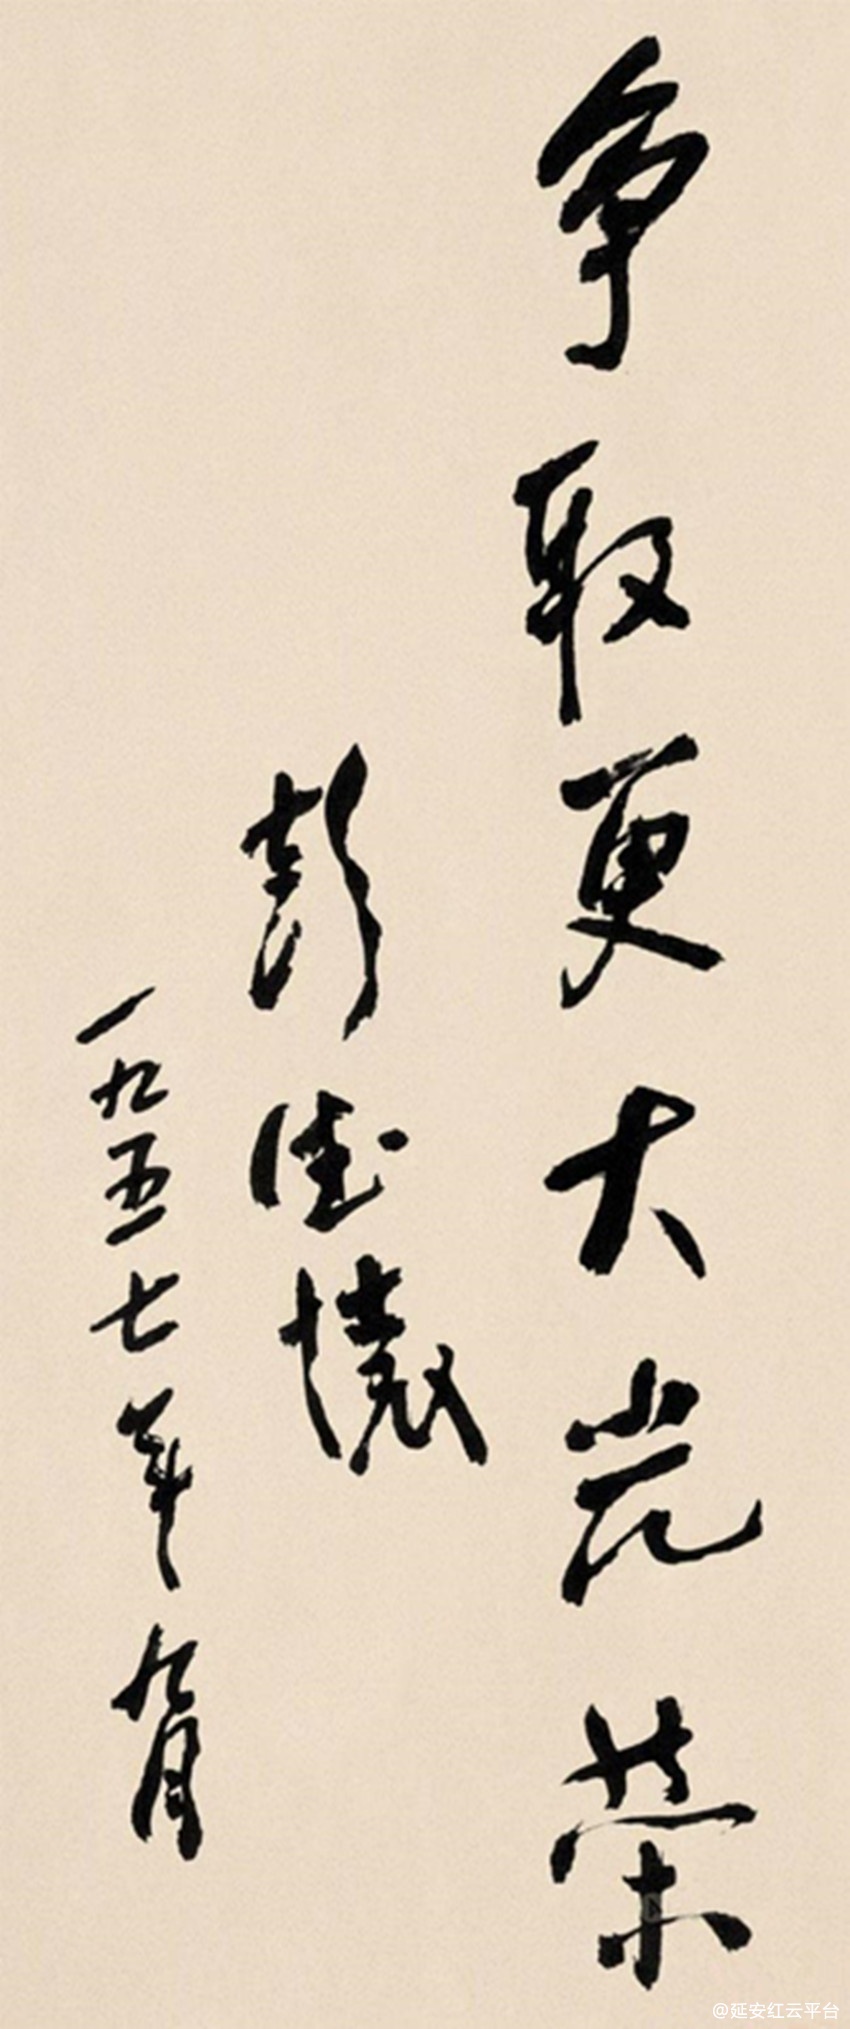 争取更大光荣
彭德怀
一九五七年九月
@延安红云平台